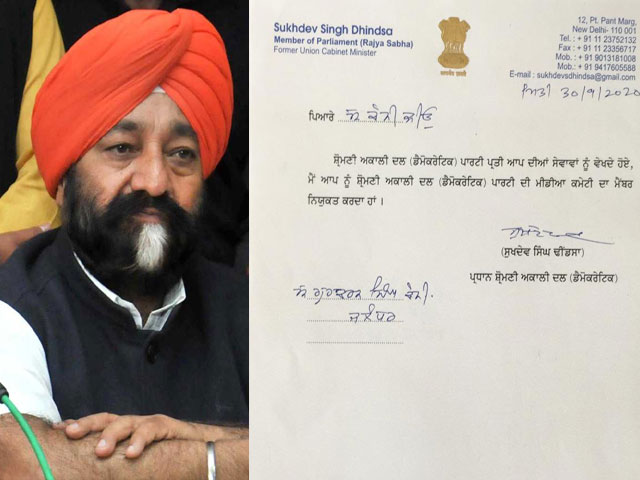 Sukhdev Singh Dhindsa
Member of Parliament (Rajya Sabha)
Former Union Cabinet Minister
12, Pt. Pant Marg,
New Delhi- 110 001
Tel. : + 91 11 23752132
Fax : + 91 11 23356717
Mob. : + 91 9013181008
Mob. : + 91 9417605588
E-mail : sukhdevsdhindsa@gmail.com
ਮਿਤੀ 30/9/2020
ਪਿਆਰੇ
ਸ਼੍ਰੋਮਣੀ ਅਕਾਲੀ ਦਲ (ਡੈਮੋਕਰੇਟਿਕ) ਪਾਰਟੀ ਪ੍ਰਤੀ ਆਪ ਦੀਆਂ ਸੇਵਾਵਾਂ ਨੂੰ ਵੇਖਦੇ ਹੋਏ,
ਮੈਂ ਆਪ ਨੂੰ ਸ਼੍ਰੋਮਣੀ ਅਕਾਲੀ ਦਲ (ਡੈਮੋਕਰੇਟਿਕ) ਪਾਰਟੀ ਦੀ ਮੀਡੀਆ ਕਮੇਟੀ ਦਾ ਮੈਂਬਰ
ਨਿਯੁਕਤ ਕਰਦਾ ਹਾਂ ।
(ਸੁਖਦੇਵ ਸਿੰਘ ਢੀਂਡਸਾ)
ਪ੍ਰਧਾਨ ਸ਼੍ਰੋਮਣੀ ਅਕਾਲੀ ਦਲ (ਡੈਮੋਕਰੇਟਿਕ)
ਸ ਗੁਰਚਰਨ ਸਿੰਘ ਚੰਨੀ.
ਜਲੰਧਰ